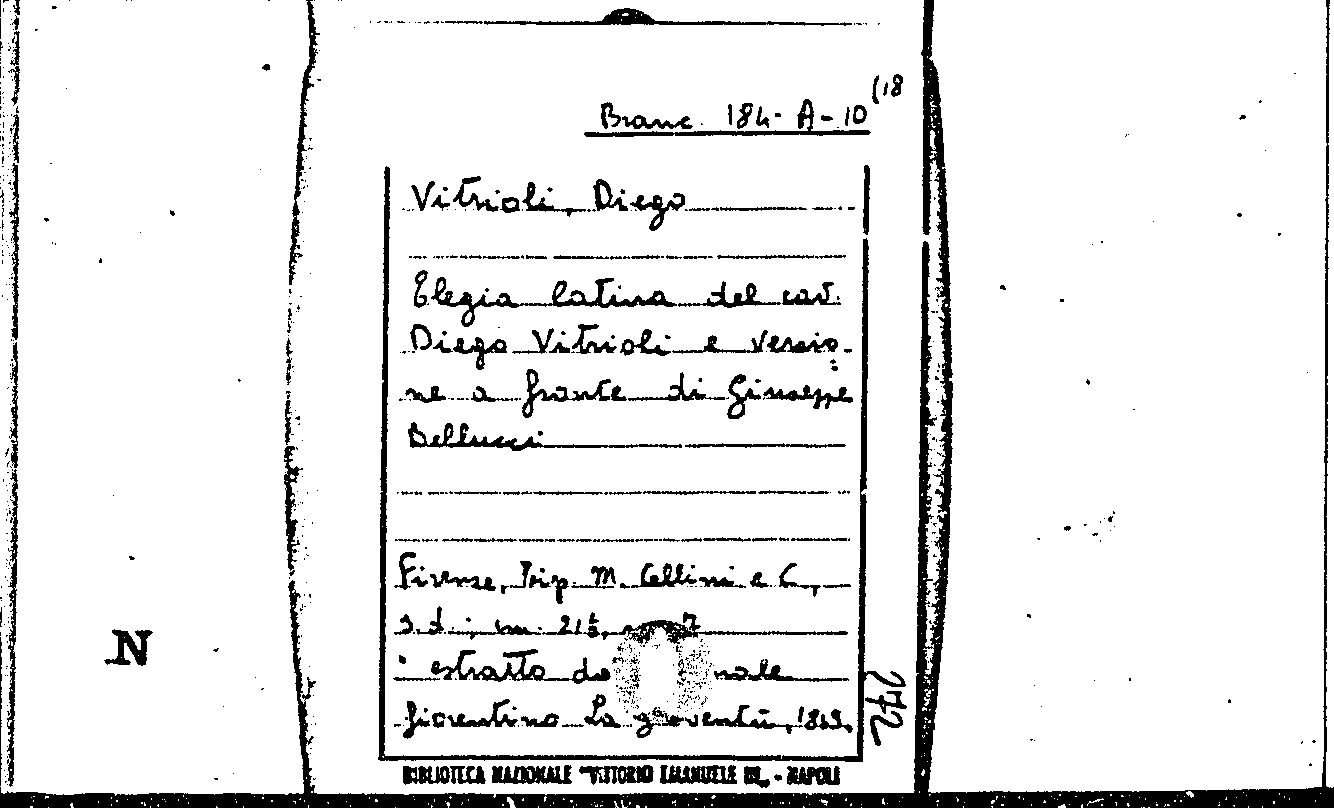 Branc. 184- A-10 (18
Vitrioli, Diego
Elegia latina del cav.
Diego Vitrioli e versio-
ne a fronte di Giuseppe
Bellucci
Firenze, Tip. M. Cellini e C.,
s.d.; cm. 21½, 7
estratto
fiorentino La gioventù, 1869.
N
BIBLIOTECA NAZIONALE "VITTORIO EMANUELE III" - NAPOLI